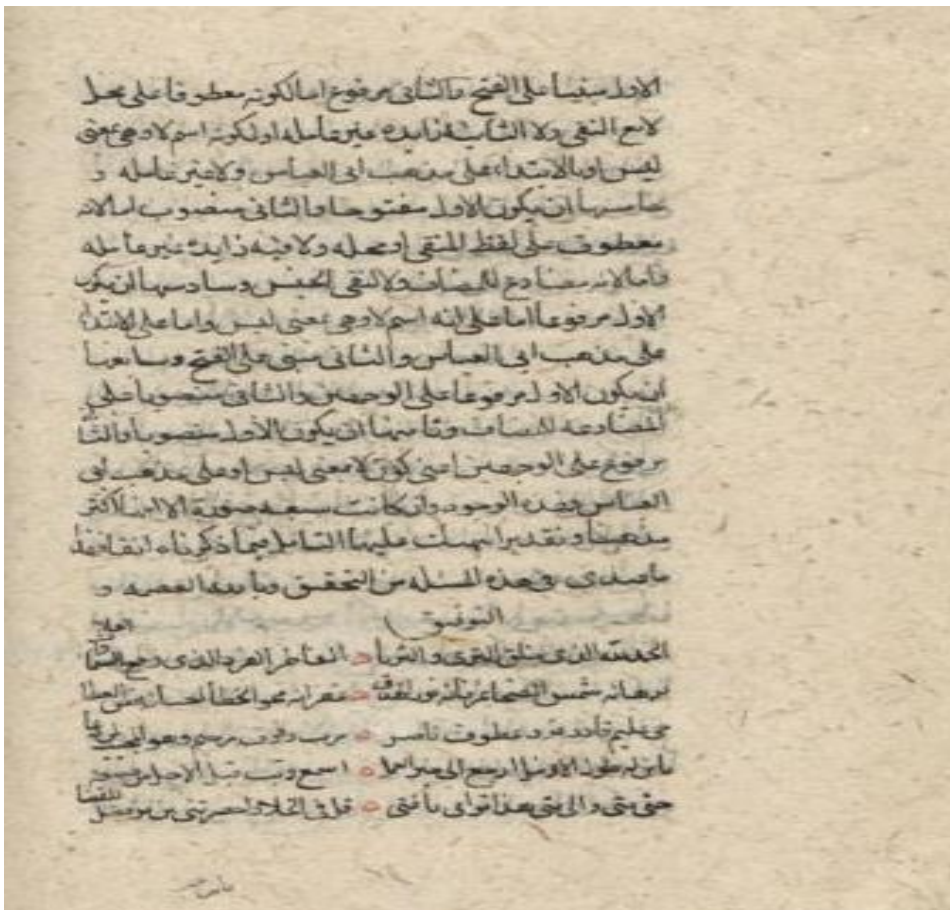 الاول مبنيا على الفتح والثانى مرفوع اما لكونه معطوفا على محل
لا مع النفى ولا الثانية زايدة غير عامله او لكونه اسم لا وهى بمعنى
ليس او بالابتداء على مذهب ابى العباس ولا غير عامله و
خامسها ان يكون الاول مفتوحا والثانى منصوب اما لانه
معطوف على لفظ المنفى او محله ولا فيه زايدة غير عامله
فاما لانه مضارع للمضاف ولا لنفى الجنس وسادسها ان يكون
الاول مرفوعا اما على انه اسم لا وهى بمعنى ليس واما على الابتداء
على مذهب ابى العباس والثانى مبنى على الفتح وسابعها
ان يكون الاول مرفوعا على الوجهين والثانى منصوبا على
المضارعه للمضاف وثامنها ان يكون الاول منصوبا والثا
مرفوع على الوجهين اعنى كون لا بمعنى ليس او على مذهب ابى
العباس وهذه الوجوه وان كانت سبعه صورة الا انها اكثر
مذهبا وتقديرا يهملت عليها التامل فيما ذكرناه انفا هذا
ما عندى فى هذه المسئله من التحقيق وبالله العصمه و
التوفيق
الحمد لله الذى خلق الثرى والثريا الفاطر الفرد الذى رفع السما
برهانه شمس الضحا غفرانه محو الخطا
حى عليم قادر فرد عطوف ناصر
اسمع وتب قبل الاجل
حتى متى والى متى هذا توانى يا فتى